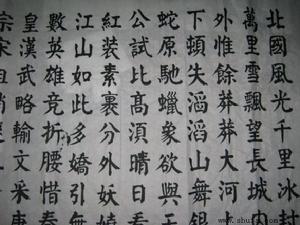 北國風光千里冰封
萬里雪飄望長城内
外惟餘莽莽大河
下頓失滔滔山舞銀
蛇原馳蠟象欲與天
公試比髙湏晴日看
紅装素裹分外妖嬈
江山如此多嬌引無
數英雄競折腰惜秦
皇漢武略輸文采唐
宗宋祖